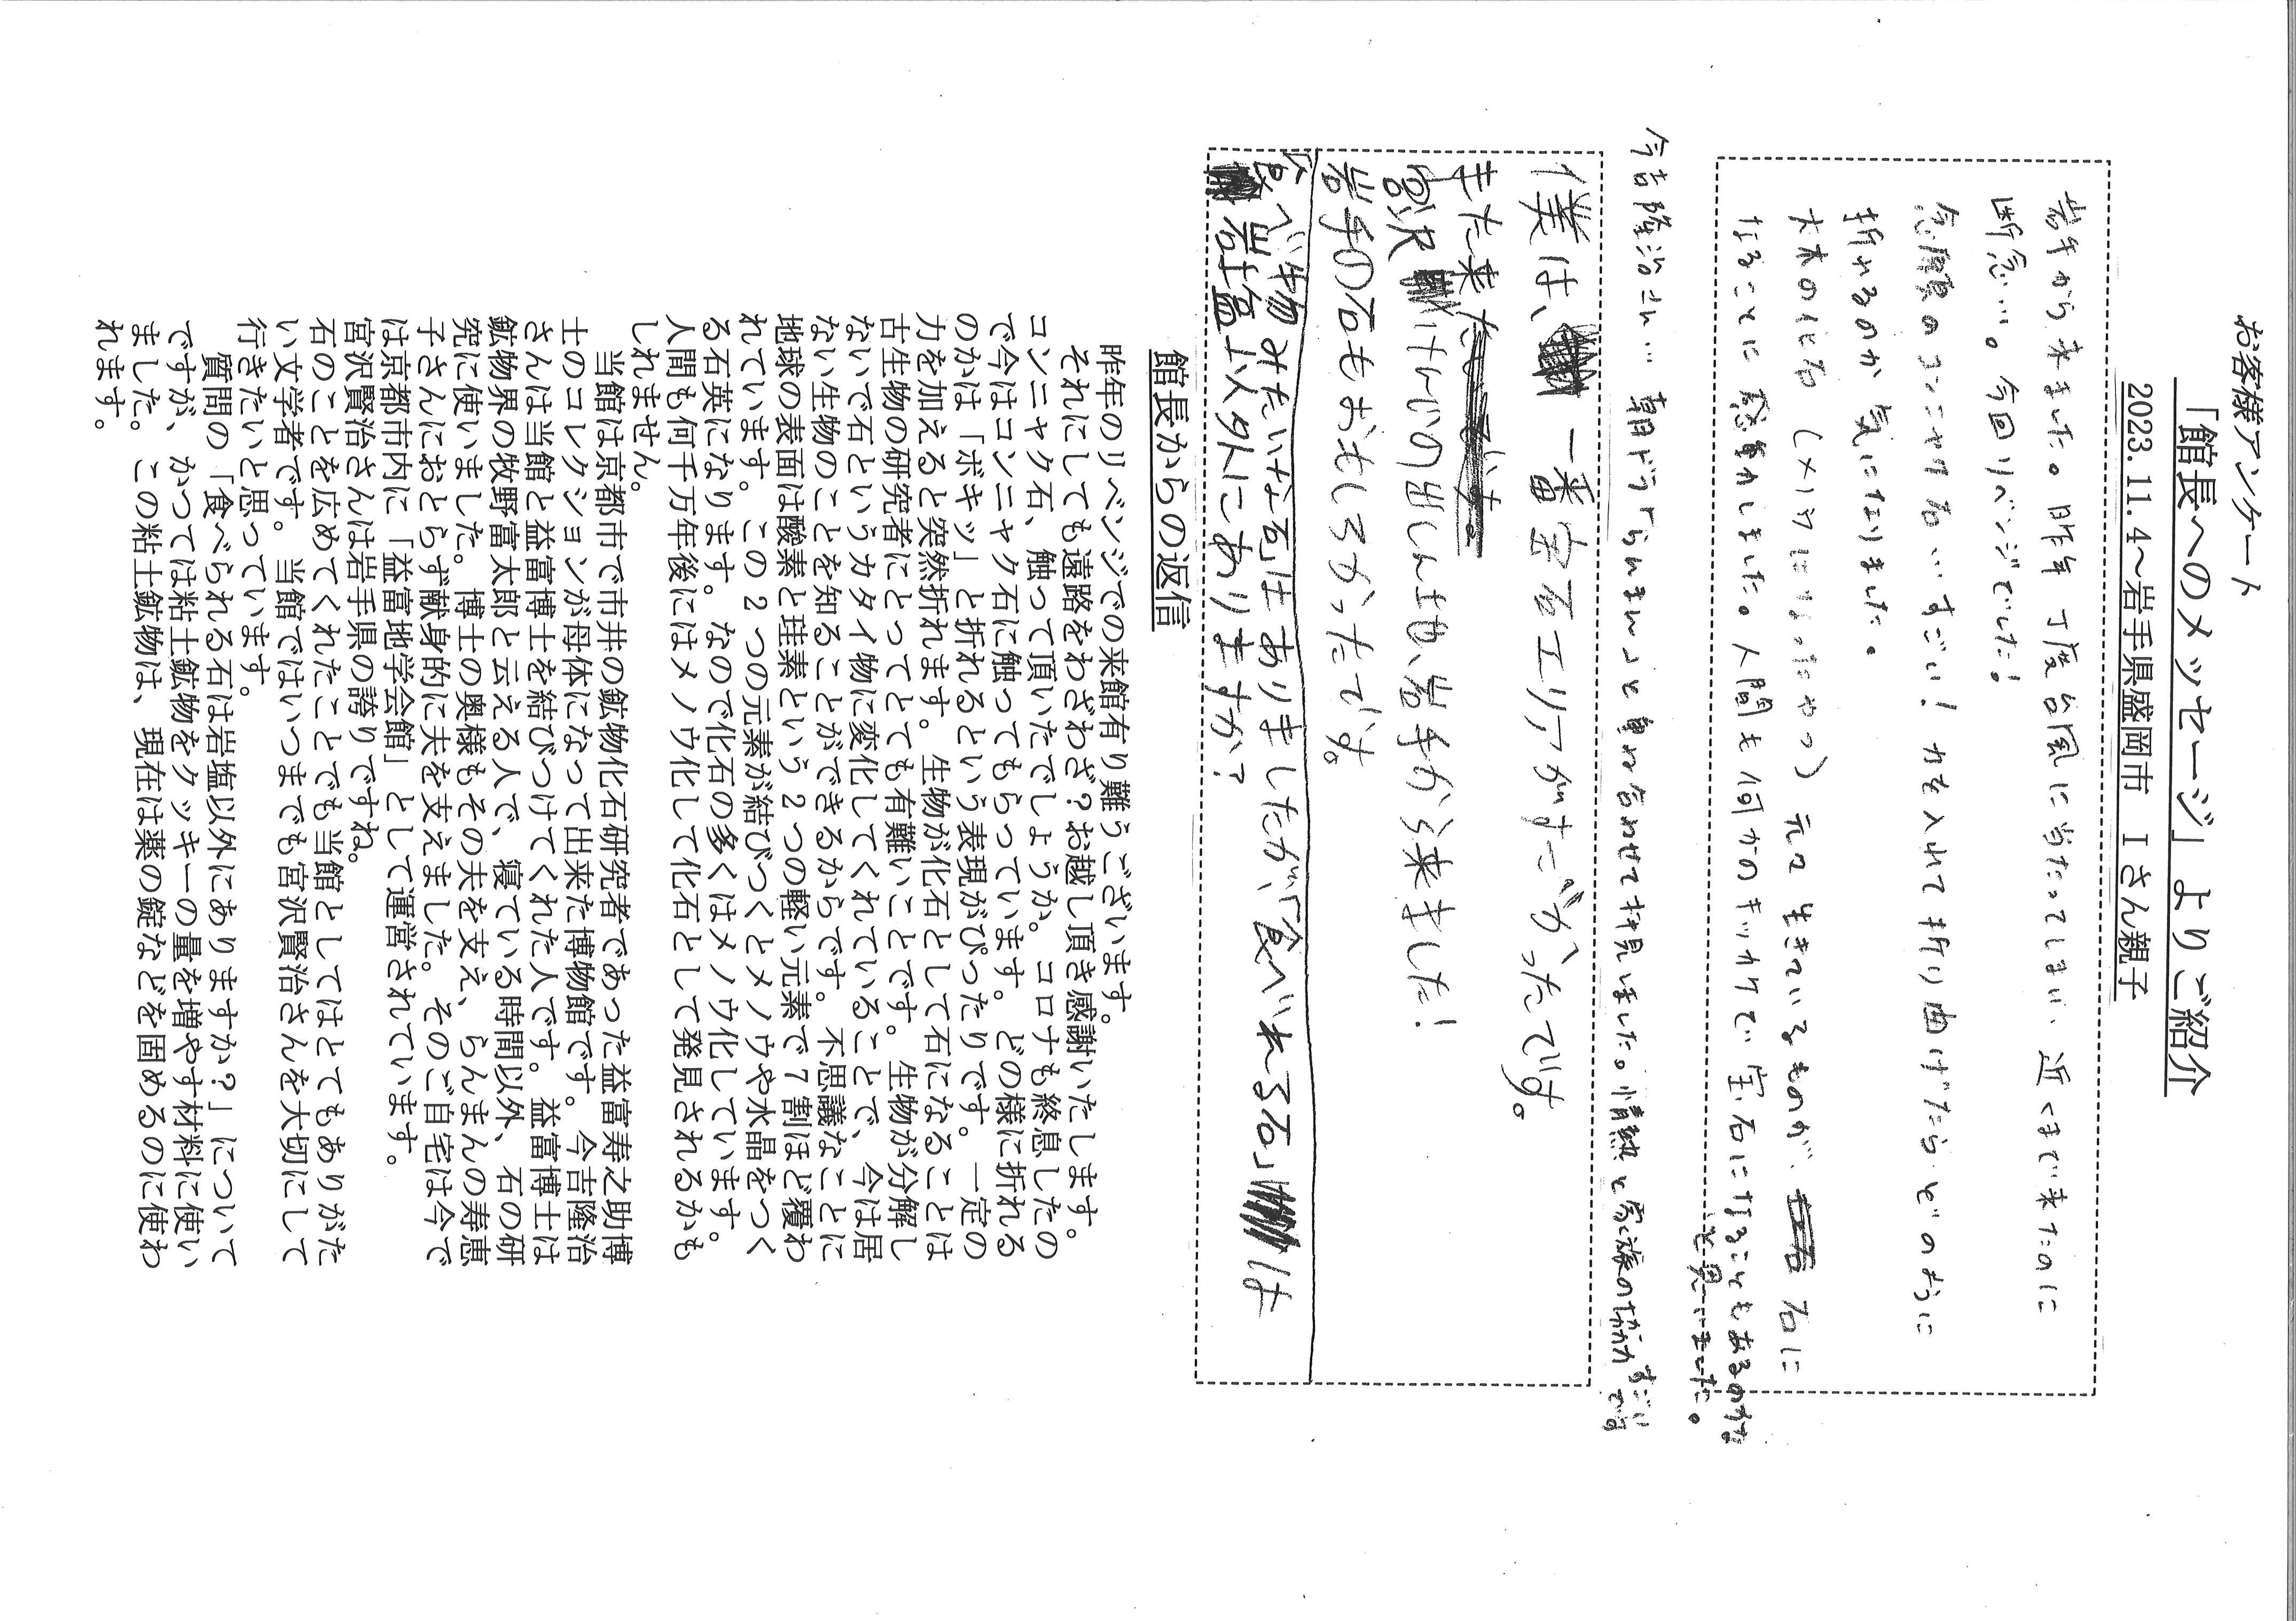 お客様アンケート
「館長へのメッセージ」よりご紹介
2023.11.4～岩手県盛岡市　Iさん親子
岩手から来ました。昨年 丁度台風に当たってしまい、近くまで来たのに
断念…。今回リベンジでした!
念願のコンニャク石…すごい! 力を入れて折り曲げたら どのように
折れるのか 気になりました。
大木の化石 (メノウになったやつ) 元々生きているものが、石に
なることに感動しました。人間も何かのキッカケで宝石になることもあるのかな
と思いました。
今吉隆治さん… 朝ドラ「らんまん」と重ね合わせて拝見しました。情熱と家族の協力 すごい
です
僕は、一番宝石エリアがすごかったです。
また来た
宮沢 けんじの出しん地、岩手から来ました!
岩手の石もおもしろかったです。
食べ物みたいな石はありましたが、「食べれる石」は
岩塩以外にありますか?
館長からの返信
昨年のリベンジでの来館有り難うございます。
それにしても遠路をわざわざ？お越し頂き感謝いたします。
コンニャク石、触って頂いたでしょうか。コロナも終息したの
で今はコンニャク石に触ってもらっています。どの様に折れる
のかは「ボキッ」と折れるという表現がぴったりです。一定の
力を加えると突然折れます。生物が化石として石になることは
古生物の研究者にとってとても有難いことです。生物が分解し
ないで石というカタイ物に変化してくれていることで、今は居
ない生物のことを知ることができるからです。不思議なことに
地球の表面は酸素と珪素という２つの軽い元素で７割ほど覆わ
れています。この２つの元素が結びつくとメノウや水晶をつく
る石英になります。なので化石の多くはメノウ化しています。
人間も何千万年後にはメノウ化して化石として発見されるかも
しれません。
当館は京都市で市井の鉱物化石研究者であった益富寿之助博
士のコレクションが母体になって出来た博物館です。今吉隆治
さんは当館と益富博士を結びつけてくれた人です。益富博士は
鉱物界の牧野富太郎と云える人で、寝ている時間以外、石の研
究に使いました。博士の奥様もその夫を支え、らんまんの寿恵
子さんにおとらず献身的に夫を支えました。そのご自宅は今で
は京都市内に「益富地学会館」として運営されています。
宮沢賢治さんは岩手県の誇りですね。
石のことを広めてくれたことでも当館としてはとてもありがた
い文学者です。当館ではいつまでも宮沢賢治さんを大切にして
行きたいと思っています。
質問の「食べられる石は岩塩以外にありますか？」について
ですが、かつては粘土鉱物をクッキーの量を増やす材料に使い
ました。この粘土鉱物は、現在は薬の錠などを固めるのに使わ
れます。